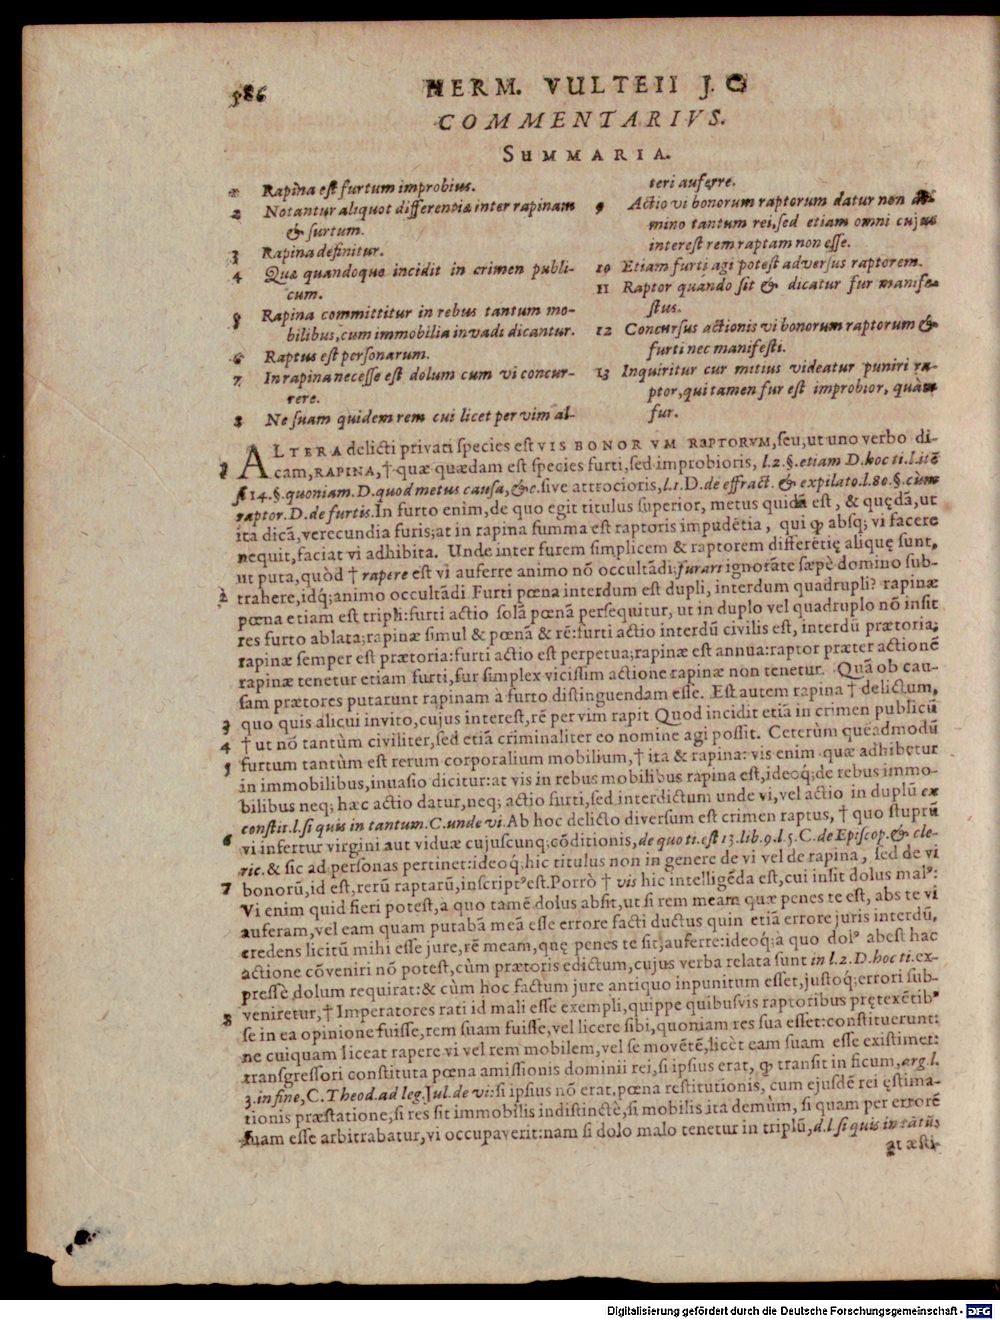 586
HERM. VULTEII J. C
COMMENTARIVS.
SUMMARIA.
1 Rapina est furtum improbius.
2 Notantur aliquot differentiæ inter rapinam
& furtum.
3 Rapina definitur.
4 Quæ quandoque incidit in crimen publi-
cum.
5 Rapina committitur in rebus tantum mo-
bilibus, cum immobilia invadi dicantur.
6 Raptus est personarum.
7 In rapina necesse est dolum cum vi concur-
rere.
8 Ne suam quidem rem cui licet per vim al-
teri auferre.
9 Actio vi bonorum raptorum datur non do-
mino tantum rei, sed etiam omni cujus
interest rem raptam non esse.
10 Etiam furti agi potest adversus raptorem.
11 Raptor quando sit & dicatur fur manife-
stus.
12 Concursus actionis vi bonorum raptorum &
furti nec manifesti.
13 Inquiritur cur mitius videatur puniri ra-
ptor, qui tamen fur est improbior, quàm
fur.
ALTERA delicti privati species est VIS BONORVM RAPTORVM, seu, ut uno verbo di-
1 cam, RAPINA, † quæ quædam est species furti, sed improbioris, l.2.§.etiam D.hoc ti.l.itē
si 14.§.quoniam.D.quod metus causa, &c. sive attrocioris, l.1.D.de effract. & expilato.l.80.§.cum
raptor.D.de furtis. In furto enim, de quo egit titulus superior, metus quidā est, & quędā, ut
ita dicā, verecundia furis; at in rapina summa est raptoris impudētia, qui ꝙ absq; vi facere
nequit, faciat vi adhibita. Unde inter furem simplicem & raptorem differētię alique sunt,
ut puta, quòd † rapere est vi auferre animo nō occultādi: furari ignorāte sæpè domino sub-
2 trahere, idq́; animo occultādi Furti pœna interdum est dupli, interdum quadrupli? rapinæ
pœna etiam est tripli: furti actio solā pœnā persequitur, ut in duplo vel quadruplo nō insit
res furto ablata; rapinæ simul & pœnā & rē: furti actio interdū civilis est, interdū prætoria;
rapinæ semper est prætoria: furti actio est perpetua; rapinæ est annua: raptor præter actionē
rapinæ tenetur etiam furti, fur simplex vicissim actione rapinæ non tenetur. Quā ob cau-
sam prætores putarunt rapinam à furto distinguendam esse. Est autem rapina † delictum,
3 quo quis alicui invito, cujus interest, rē per vim rapit Quod incidit etiā in crimen publicū
4 † ut nō tantùm civiliter, sed etiā criminaliter eo nomine agi possit. Ceterùm quēadmodū
5 furtum tantùm est rerum corporalium mobilium, † ita & rapina: vis enim quæ adhibetur
in immobilibus, inuasio dicitur: at vis in rebus mobilibus rapina est, ideoq́; de rebus immo-
bilibus neq; hæc actio datur, neq; actio furti, sed interdictum unde vi, vel actio in duplū ex
constit.l.si quis in tantum.C.unde vi. Ab hoc delicto diversum est crimen raptus, † quo stuprū
6 vi infertur virgini aut viduæ cujuscunq; cōditionis, de quo ti.est 13.lib.9.l.5.C.de Episcop.& cle-
ric. & sic ad personas pertinet: ideoq́; hic titulus non in genere de vi vel de rapina, sed de vi
7 bonorū, id est, rerū raptarū, inscriptꝰ est. Porrò † vis hic intelligēda est, cui insit dolus malꝰ:
Vi enim quid fieri potest, à quo tamē dolus absit, ut si rem meam quæ penes te est, abs te vi
auferam, vel eam quam putabā meā esse errore facti ductus quin etiā errore juris interdū,
credens licitū mihi esse jure, rē meam, quę penes te sit, auferre: ideoq́; à quo dolꝰ abest hac
actione cōveniri nō potest, cùm prætoris edictum, cujus verba relata sunt in l.2.D.hoc ti. ex-
pressè dolum requirat: & cùm hoc factum jure antiquo inpunitum esset, justoq́; errori sub-
8 veniretur, † Imperatores rati id mali esse exempli, quippe quibusvis raptoribus prętexētibꝰ
se in ea opinione fuisse, rem suam fuisse, vel licere sibi, quoniam res sua esset: constituerunt:
ne cuiquam liceat rapere vi vel rem mobilem, vel se movētē, licèt eam suam esse existimet:
transgressori constituta pœna amissionis dominii rei, si ipsius erat, ꝙ transit in ficum, arg.l.
3.in fine, C.Theod.ad leg.Jul.de vi: si ipsius nō erat, pœna restitutionis, cum ejusdē rei ęstima-
tionis præstatione, si res sit immobilis indistinctè, si mobilis ita demùm, si quam per errorē
suam esse arbitrabatur, vi occupaverit: nam si dolo malo tenetur in triplū, d.l.si quis in tātū;
at æsti-
Digitalisierung gefördert durch die Deutsche Forschungsgemeinschaft - DFG